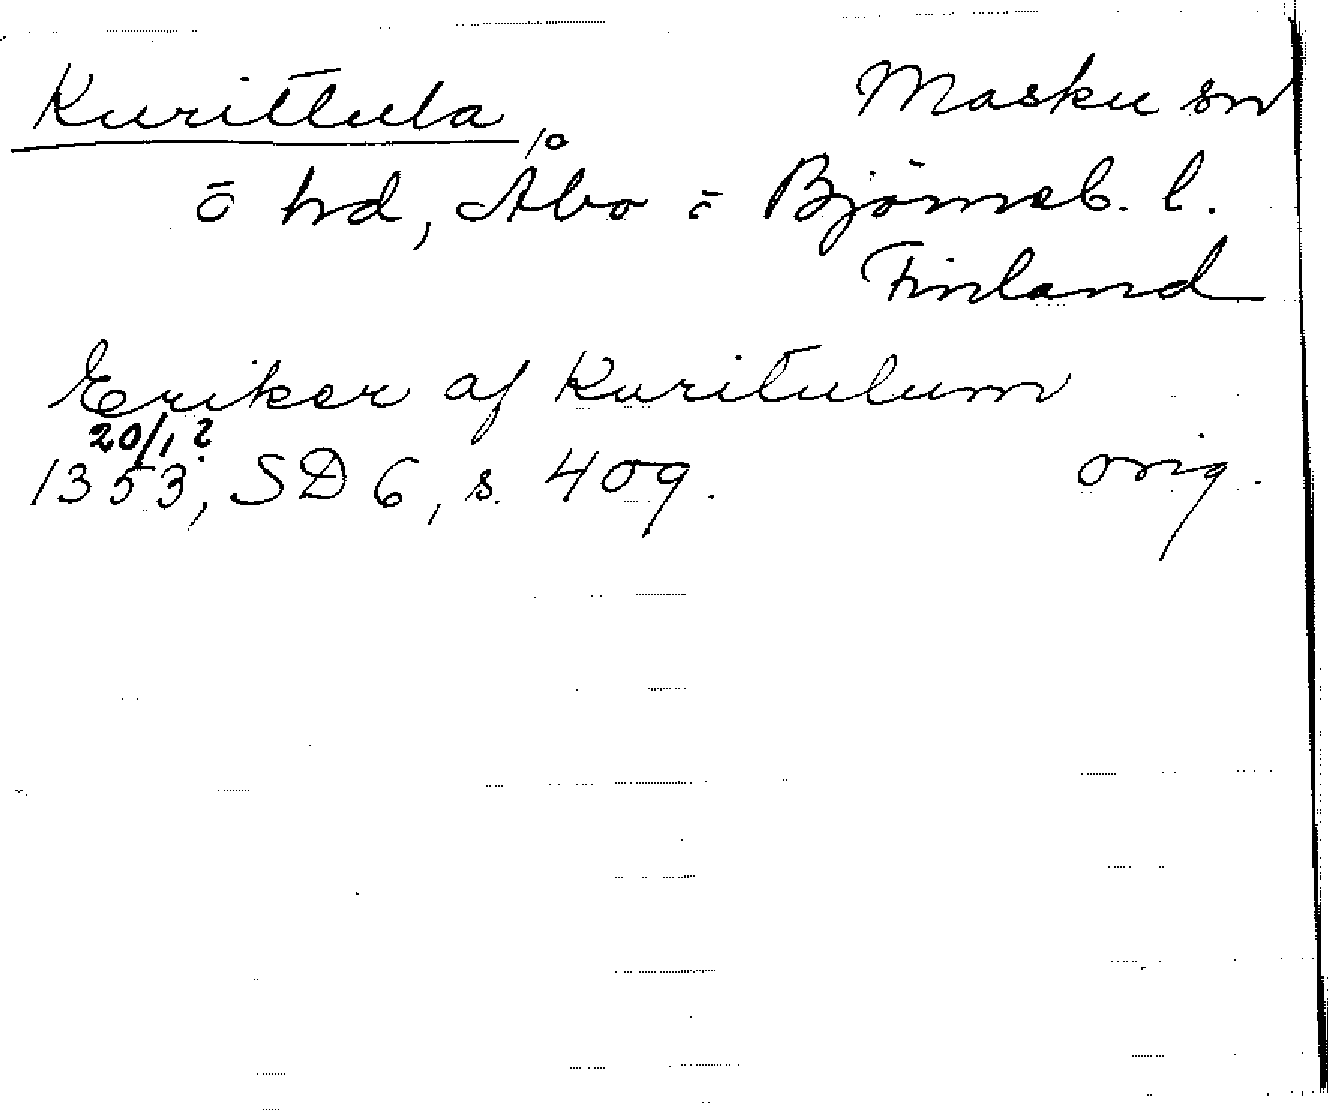 Kurittula Masku sn
o hd, Åbo = Björneb. l.
Finland
Eriker af Kuritulum
20/1?
1353, SD 6, s. 409. orig.